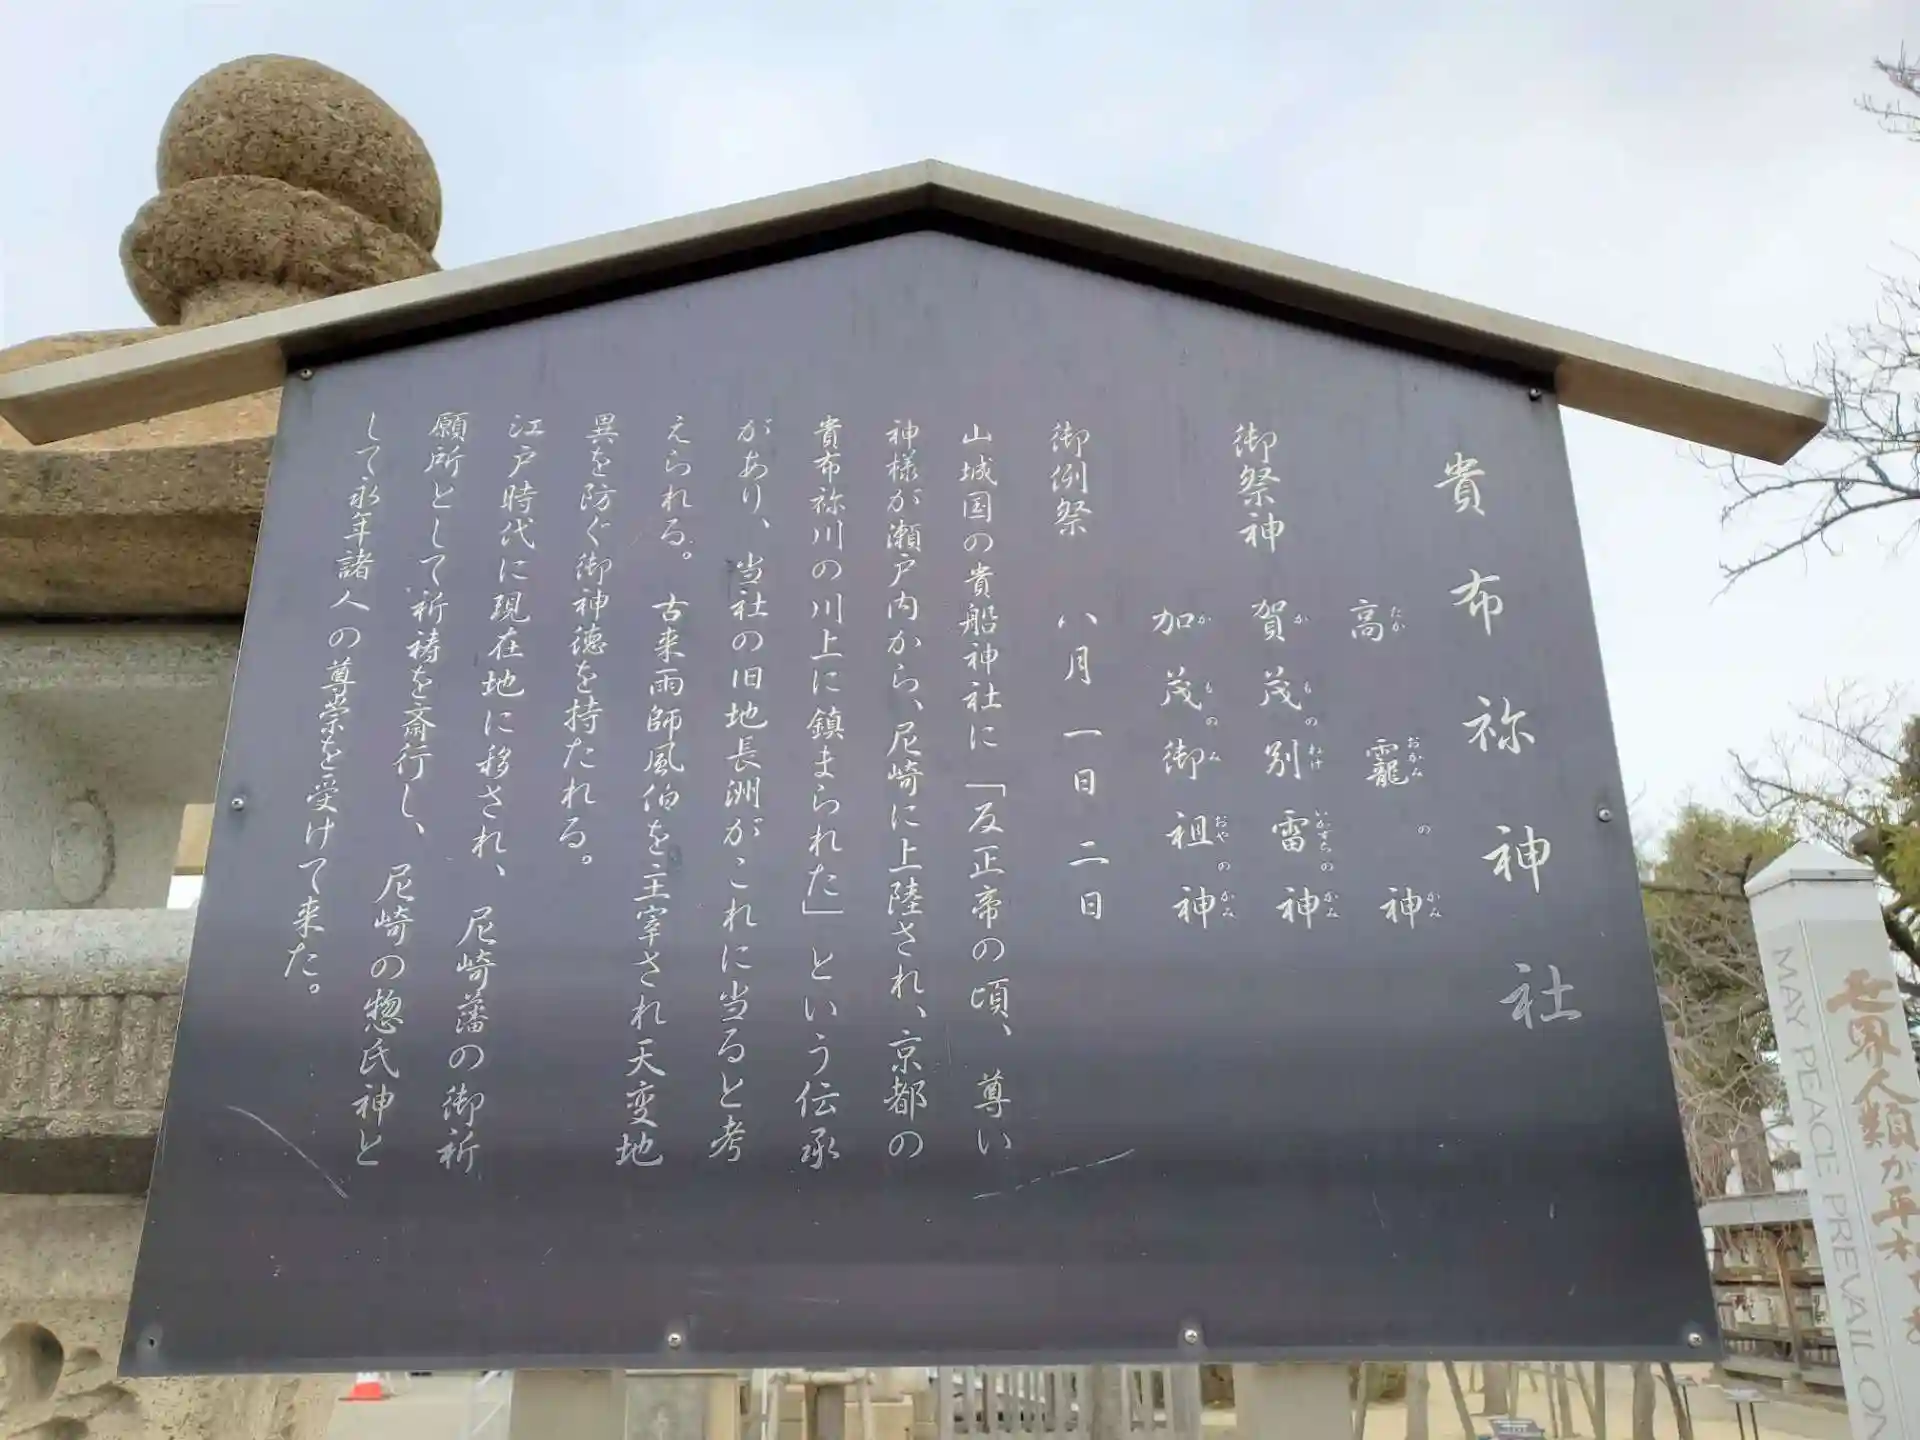 貴布祢神社
御祭神
高龗の神
たか おかみ の かみ
賀茂別雷神
か もの わけ いかずちの かみ
加茂御祖神
か もの み おやの かみ
御例祭 八月一日 二日
山城国の貴船神社に「反正帝の頃、尊い
神様が瀬戸内から、尼崎に上陸され、京都の
貴布祢川の川上に鎮まられた」という伝承
があり、当社の旧地長洲がこれに当ると考
えられる。古来雨師風伯を主宰され天変地
異を防ぐ御神徳を持たれる。
江戸時代に現在地に移され、尼崎藩の御祈
願所として祈祷を斎行し、尼崎の惣氏神と
して永年諸人の尊崇を受けて来た。
世界人類が平和
MAY PEACE PREVAIL ON